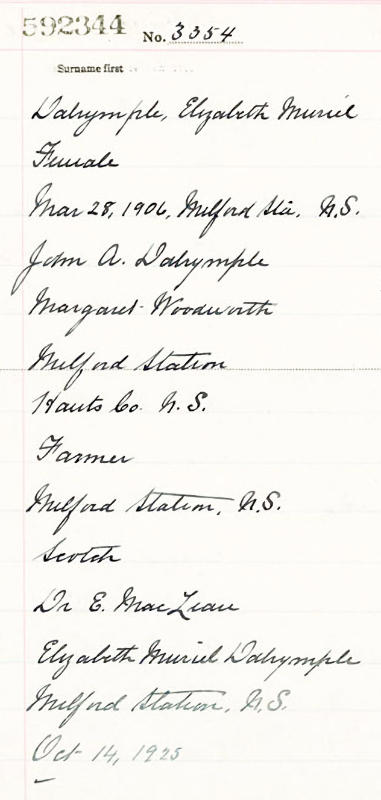 592344 No. 3354
Surname first
Dalrymple, Elizabeth Muriel
Female
Mar 28, 1906, Milford Sta. N.S.
John A. Dalrymple
Margaret Woodworth
Milford Station
Hants Co. N.S.
Farmer
Milford Station, N.S.
Scotch
Dr E. MacLean
Elizabeth Muriel Dalrymple
Milford Station, N.S.
Oct 14, 1925